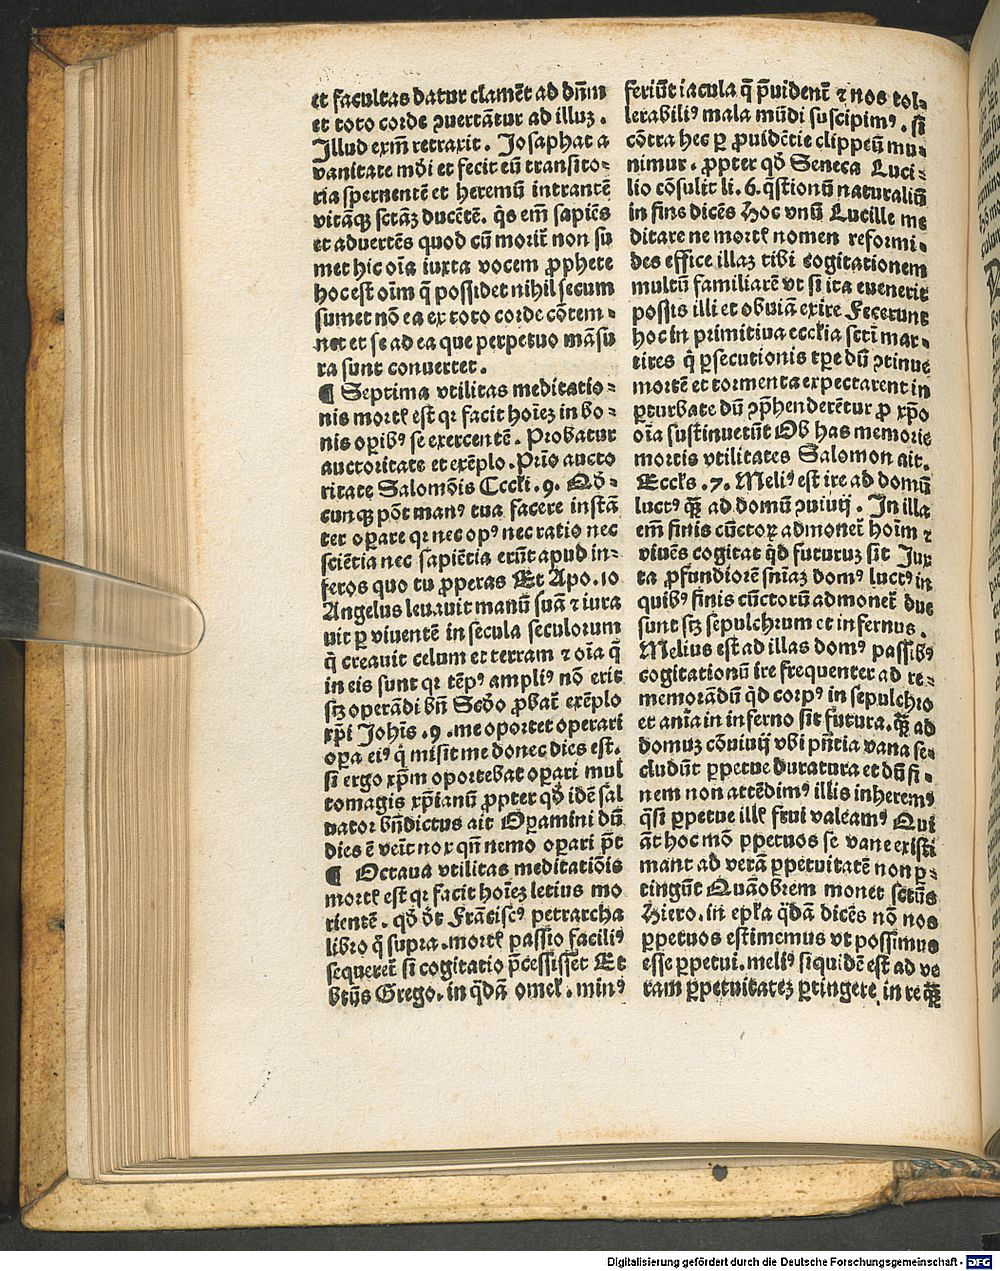 et facultas datur clamēt ad dn̄m
et toto corde ꝯuertātur ad illuz.
Illud exm̄ retraxit. Josaphat a
vanitate mōi et fecit eū transito⸗
ria spernentē et heremū intrantē
vitāqꝫ sctāz ducētē. q̄s em̄ sapiēs
et aduertēs quod cū morit̄ non su
met hic oīa iuxta vocem ꝓphete
hoc est oīm q̄ possidet nihil secum
sumet nō ea ex toto corde cōtem⸗
net et se ad ea que perpetuo māsu
ra sunt conuertet.
¶ Septima vtilitas meditatio⸗
nis mortꝭ est qr facit hoīez in bo⸗
nis oꝑibꝰ se exercentē. Probatur
auctoritate et exēplo. Prīo aucto
ritate Salomōis Eccłi. 9. Qd̄⸗
cunqꝫ pōt manꝰ tua facere instā
ter oꝑare qr nec opꝰ nec ratio nec
sciētia nec sapiētia erūt apud in⸗
feros quo tu ꝓperas Et Apo. 10
Angelus leuauit manū suā ⁊ iura
uit ꝑ viuentē in secula seculorum
q̇ creauit celum et terram ⁊ oīa q̄
in eis sunt qr tēpꝰ ampliꝰ nō erit
stz operādi bn̄ Scd̄o ꝓbat̄ exēplo
xp̄i Joh̄is. 9. me oportet operari
oꝑa eiꝰ q̇ misit me donec dies est.
si ergo xp̄m oportebat oꝑari mul
tomagis xp̄ianū ꝓpter qd̄ idē sal
uator bn̄dictus ait Oꝑamini dū
dies ē veīt nox qn̄ nemo oꝑari p̄t
¶ Octaua vtilitas meditatiōis
mortꝭ est qr facit hoīez letius mo
rientē. qd̄ dt̄ Frāciscꝰ petrarcha
libro q̄ supra. mortꝭ passio faciliꝰ
sequeret̄ si cogitatio p̄cessisset Et
btūs Grego. in q̄dā omeł. minꝰ
feriūt iacula q̄ p̄uident̄ ⁊ nos tol⸗
lerabiliꝰ mala mūdi suscipimꝰ. si
cōtra hec ꝑ ꝓuidētie clippeū mu⸗
nimur. ꝓpter qd̄ Seneca Luci⸗
lio cōsulit li. 6. q̄stionū naturaliū
in fine dicēs Hoc vnū Lucille me
ditare ne mortꝭ nomen reformi⸗
des effice illaz tibi cogitationem
multū familiarē vt si ita euenerit
possis illi et obuiā exire Fecerunt
hoc in primitiua eccłia scti mar⸗
tires q̇ ꝑsecutionis tꝑe dū ꝯtinue
mortē et tormenta expectarent in
ꝑturbate dū ꝯp̄henderētur ꝓ xp̄o
oīa sustinuerūt Ob has memorie
mortis vtilitates Salomon ait.
Eccłs. 7. Meliꝰ est ire ad domū
luctꝰ qꝫ̄ ad domū ꝯuiuij. In illa
em̄ finis cūctoꝝ admonet̄ hoīm ⁊
viuēs cogitat qd̄ futuruz sit Jux
ta ꝓfundiorē sn̄iaz domꝰ luctꝰ in
quibꝰ finis cūctorū admonet̄ due
sunt stz sepulchrum et infernus.
Melius est ad illas domꝰ passibꝰ
cogitationū ire frequenter ad re⸗
memorādū qd̄ corpꝰ in sepulchro
et aīa in inferno sit futura. qꝫ̄ ad
domuz cōuiuij vbi pn̄tia vana se⸗
cludūt ꝑpetue duratura et dū fi⸗
nem non attēdimꝰ illis inheremꝰ
q̄si ꝑpetue illꝭ frui valeamꝰ Qui
āt hoc mō ꝑpetuos se vane existi
mant ad verā ꝑpetuitatē non ꝑ⸗
tingūt Quāobrem monet sctūs
Hiero. in epła q̄dā dicēs nō nos
ꝑpetuos estimemus vt possimus
esse ꝑpetui. meliꝰ siquidē est ad ve
ram ꝑpetuitatez ꝑtingere in re qꝫ̄
Digitalisierung gefördert durch die Deutsche Forschungsgemeinschaft - DFG